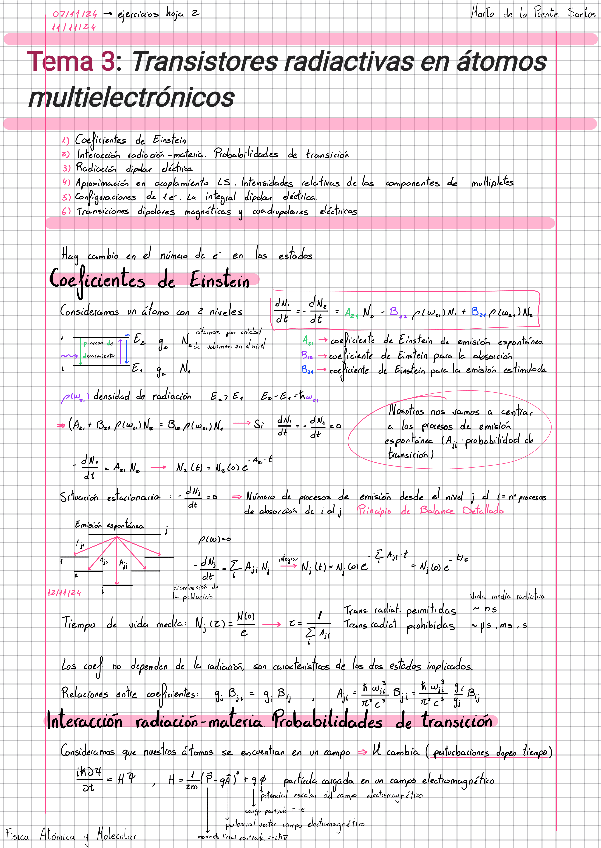 07/11/24 → ejercicios hoja 2
11/11/24
Marta de la Puente Santos
Tema 3: Transistores radiactivas en átomos
multielectrónicos
1) Coeficientes de Einstein
2) Interacción radiación-materia. Probabilidades de transición
3) Radiación dipolar eléctrica
4) Aproximación en acoplamiento LS. Intensidades relativas de las componentes de multipletes
5) Configuraciones de 1e⁻. La integral dipolar eléctrica.
6) Transiciones dipolares magnéticas y cuadrupolares eléctricas
Hay cambio en el número de e⁻ en los estados
Coeficientes de Einstein
Consideramos un átomo con 2 niveles
dN₁/dt = - dN₂/dt = A₂₁ N₂ - B₁₂ ρ(ω₂₁) N₁ + B₂₁ ρ(ω₂₁) N₂
E₂ g₂ N₂
E₁ g₁ N₁
A₂₁ → coeficiente de Einstein de emisión espontánea
B₁₂ → coeficiente de Einstein para la absorción
B₂₁ → coeficiente de Einstein para la emisión estimulada
ρ(ω₂₁) densidad de radiación E₂ > E₁ E₂ - E₁ = ħω₂₁
⇒ (A₂₁ + B₂₁ ρ(ω₂₁)) N₂ = B₁₂ ρ(ω₂₁) N₁ → Si dN₁/dt = - dN₂/dt = 0
Nosotros nos vamos a centrar
a los procesos de emisión
espontánea (Aji probabilidad de
transición)
- dN₂/dt = A₂₁ N₂ → N₂(t) = N₂(0) e^(-A₂₁·t)
Situación estacionaria : - dNj/dt = 0 ⇒ Número de procesos de emisión desde el nivel j al i = nº procesos
de absorción de i al j Principio de Balance Detallado
Emisión espontánea
j
Aji
i
ρ(ω) = 0
- dNj/dt = Σ Aji Nj → Nj(t) = Nj(0) e^(-Σ Aji·t) = Nj(0) e^(-t/τ)
de la población
12/11/24
vida media radiativa
Tiempo de vida media: Nj(τ) = N(0)/e → τ = 1/Σ Aji
Trans radiat. permitidas ~ ns
Trans radiat prohibidas ~ μs, ms, s
Los coef no dependen de la radiación, son características de los dos estados implicados
Relaciones entre coeficientes: gj Bji = gi Bij , Aji = ħ ωji³/π² c³ Bji = ħ ωji³/π² c³ gi/gj Bij
Interacción radiación-materia Probabilidades de transición
Consideramos que nuestros átomos se encuentran en un campo ⇒ H cambia (perturbaciones depen tiempo)
iħ∂Ψ/∂t = HΨ , H = 1/2m (p - qA)² + qφ partícula cargada en un campo electromagnético
potencial escalar del campo electromagnético
potencial vector campo electromagnético
Física Atómica y Molecular